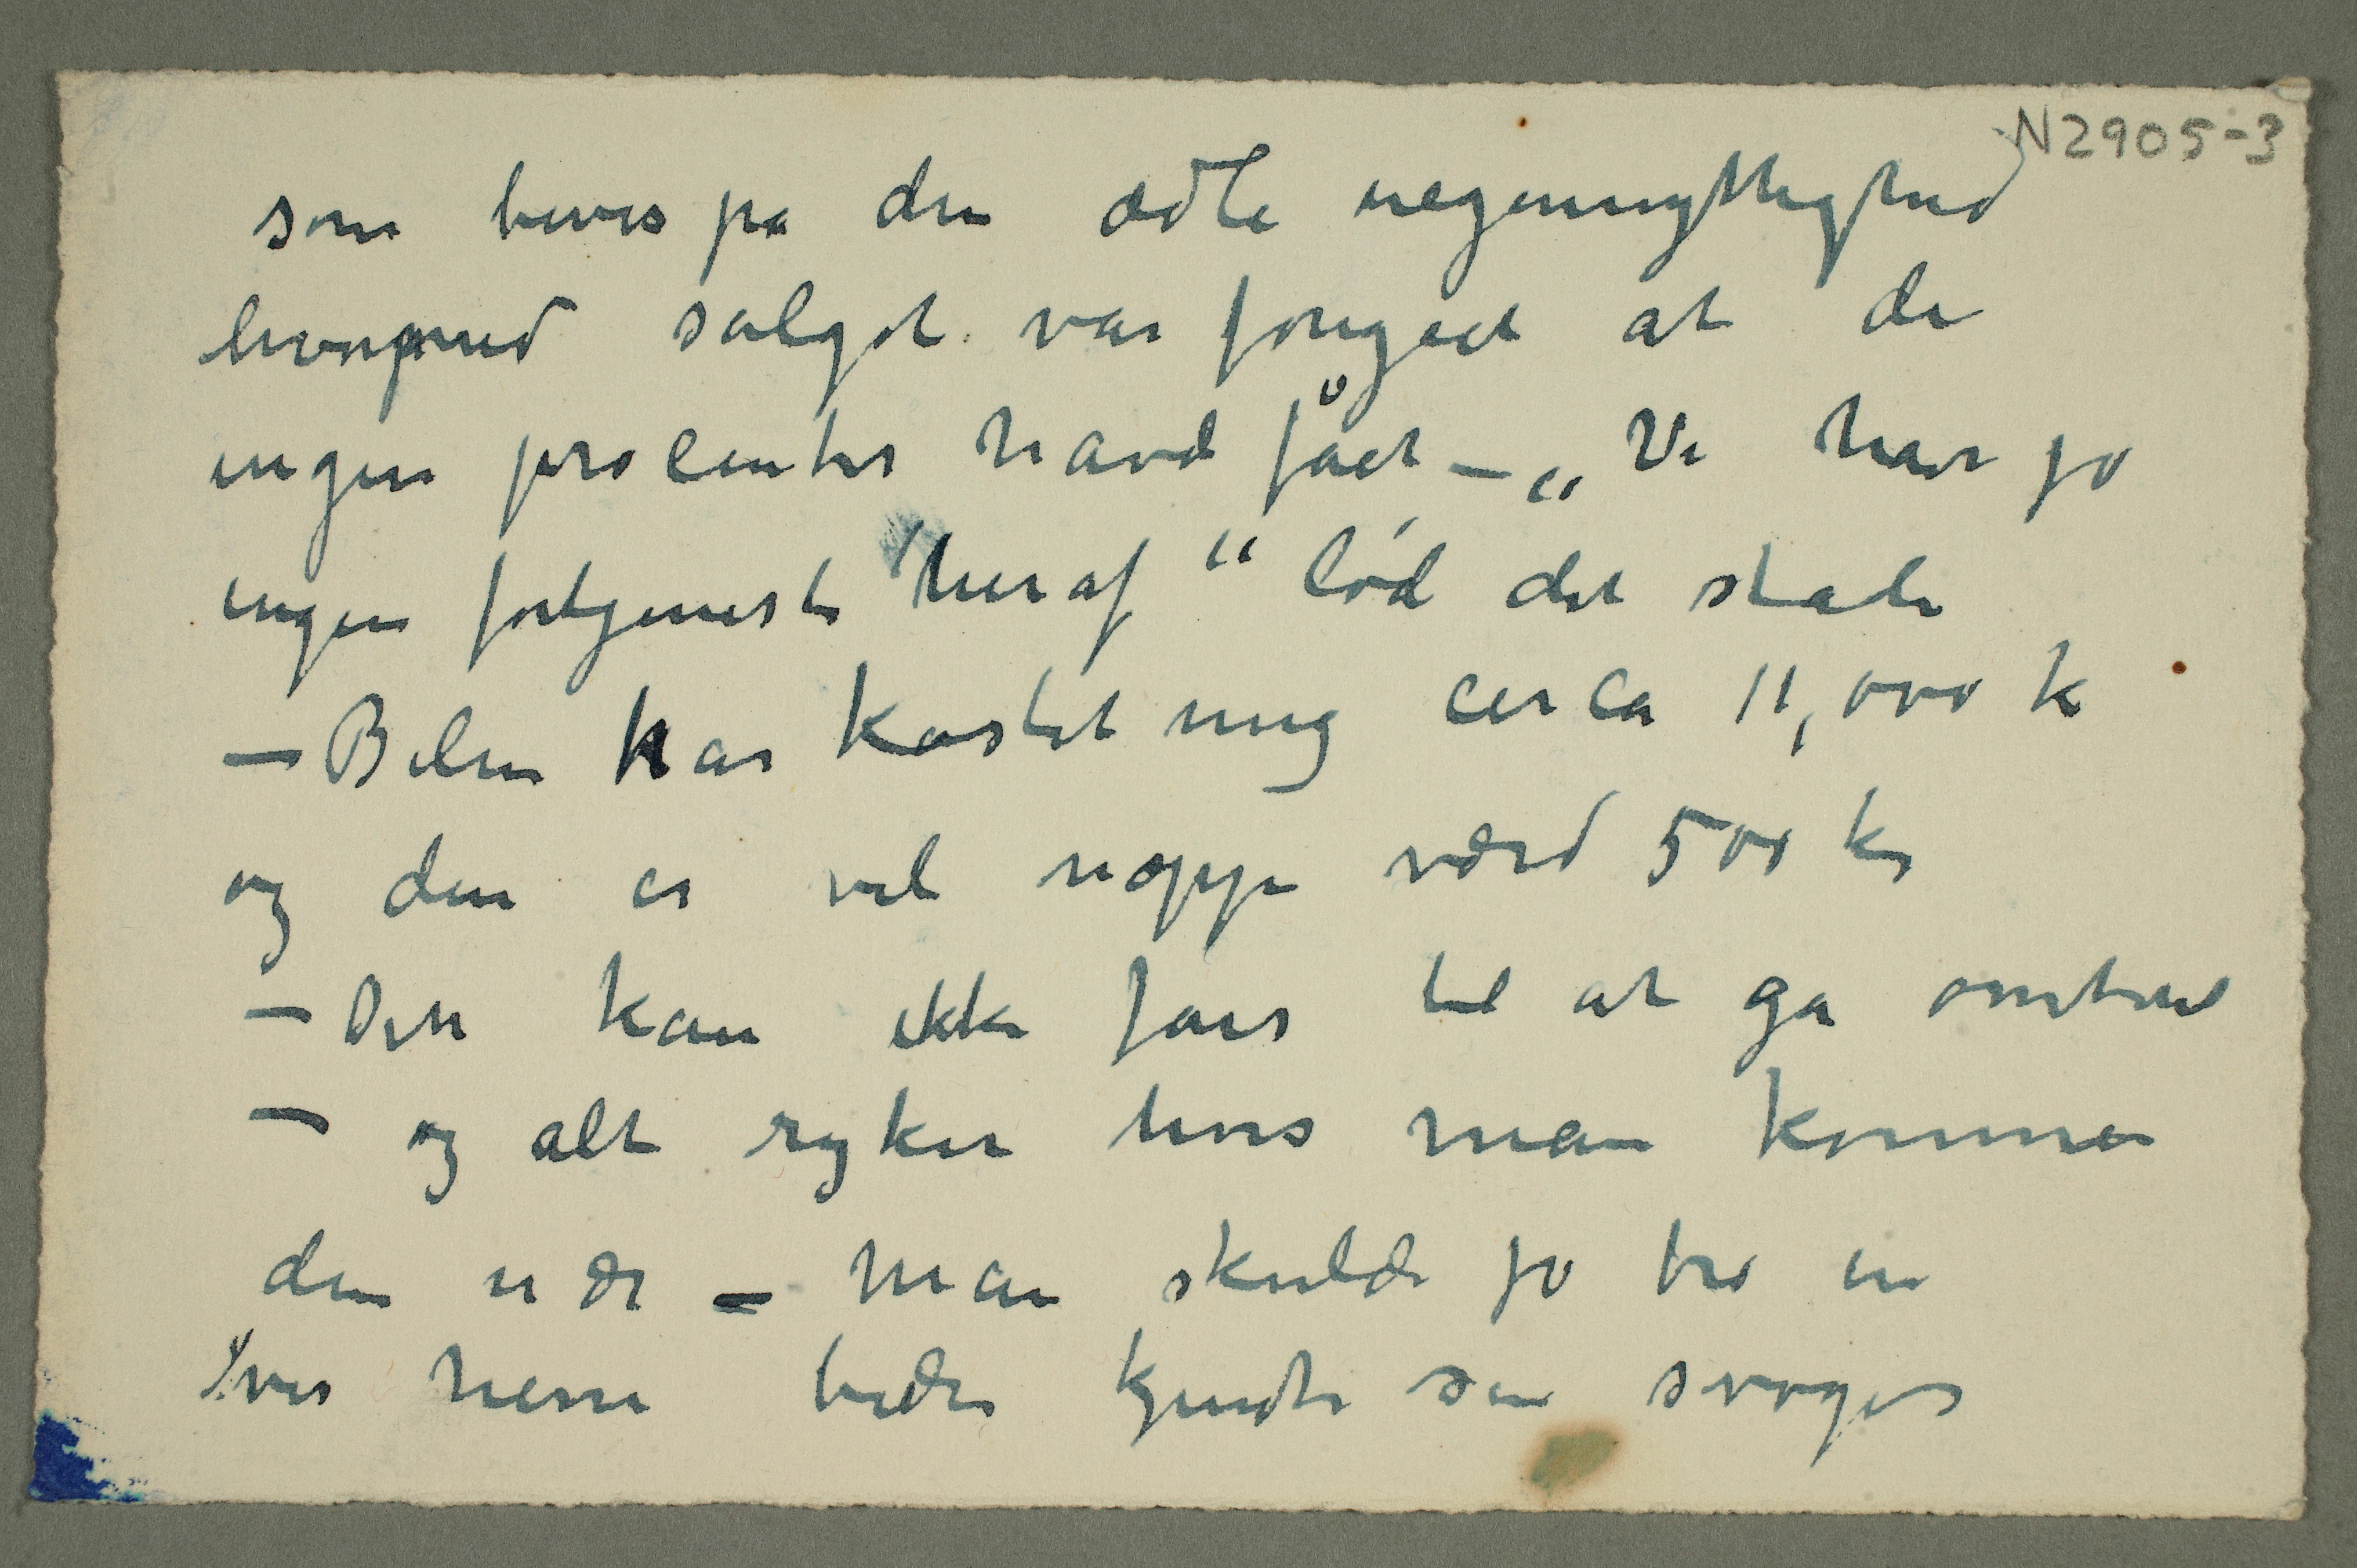 N2905-3
som bevis på den ædle uegennyttighed
hvormed salget var foregåët at de
ingen procenter havd fåët – „Vi har jo
ingen fortjeneste heraf“ lød det stæte
– Bilen har kostet mig cirka 11,000 k
og den er vel neppe værd 500 kr
– Den kan ikke fåes til at gå omtrent
– og alt ryker hvis man kommer
den nær – Man skulde jo tro en
vis herre bedre kjendte sin svoger